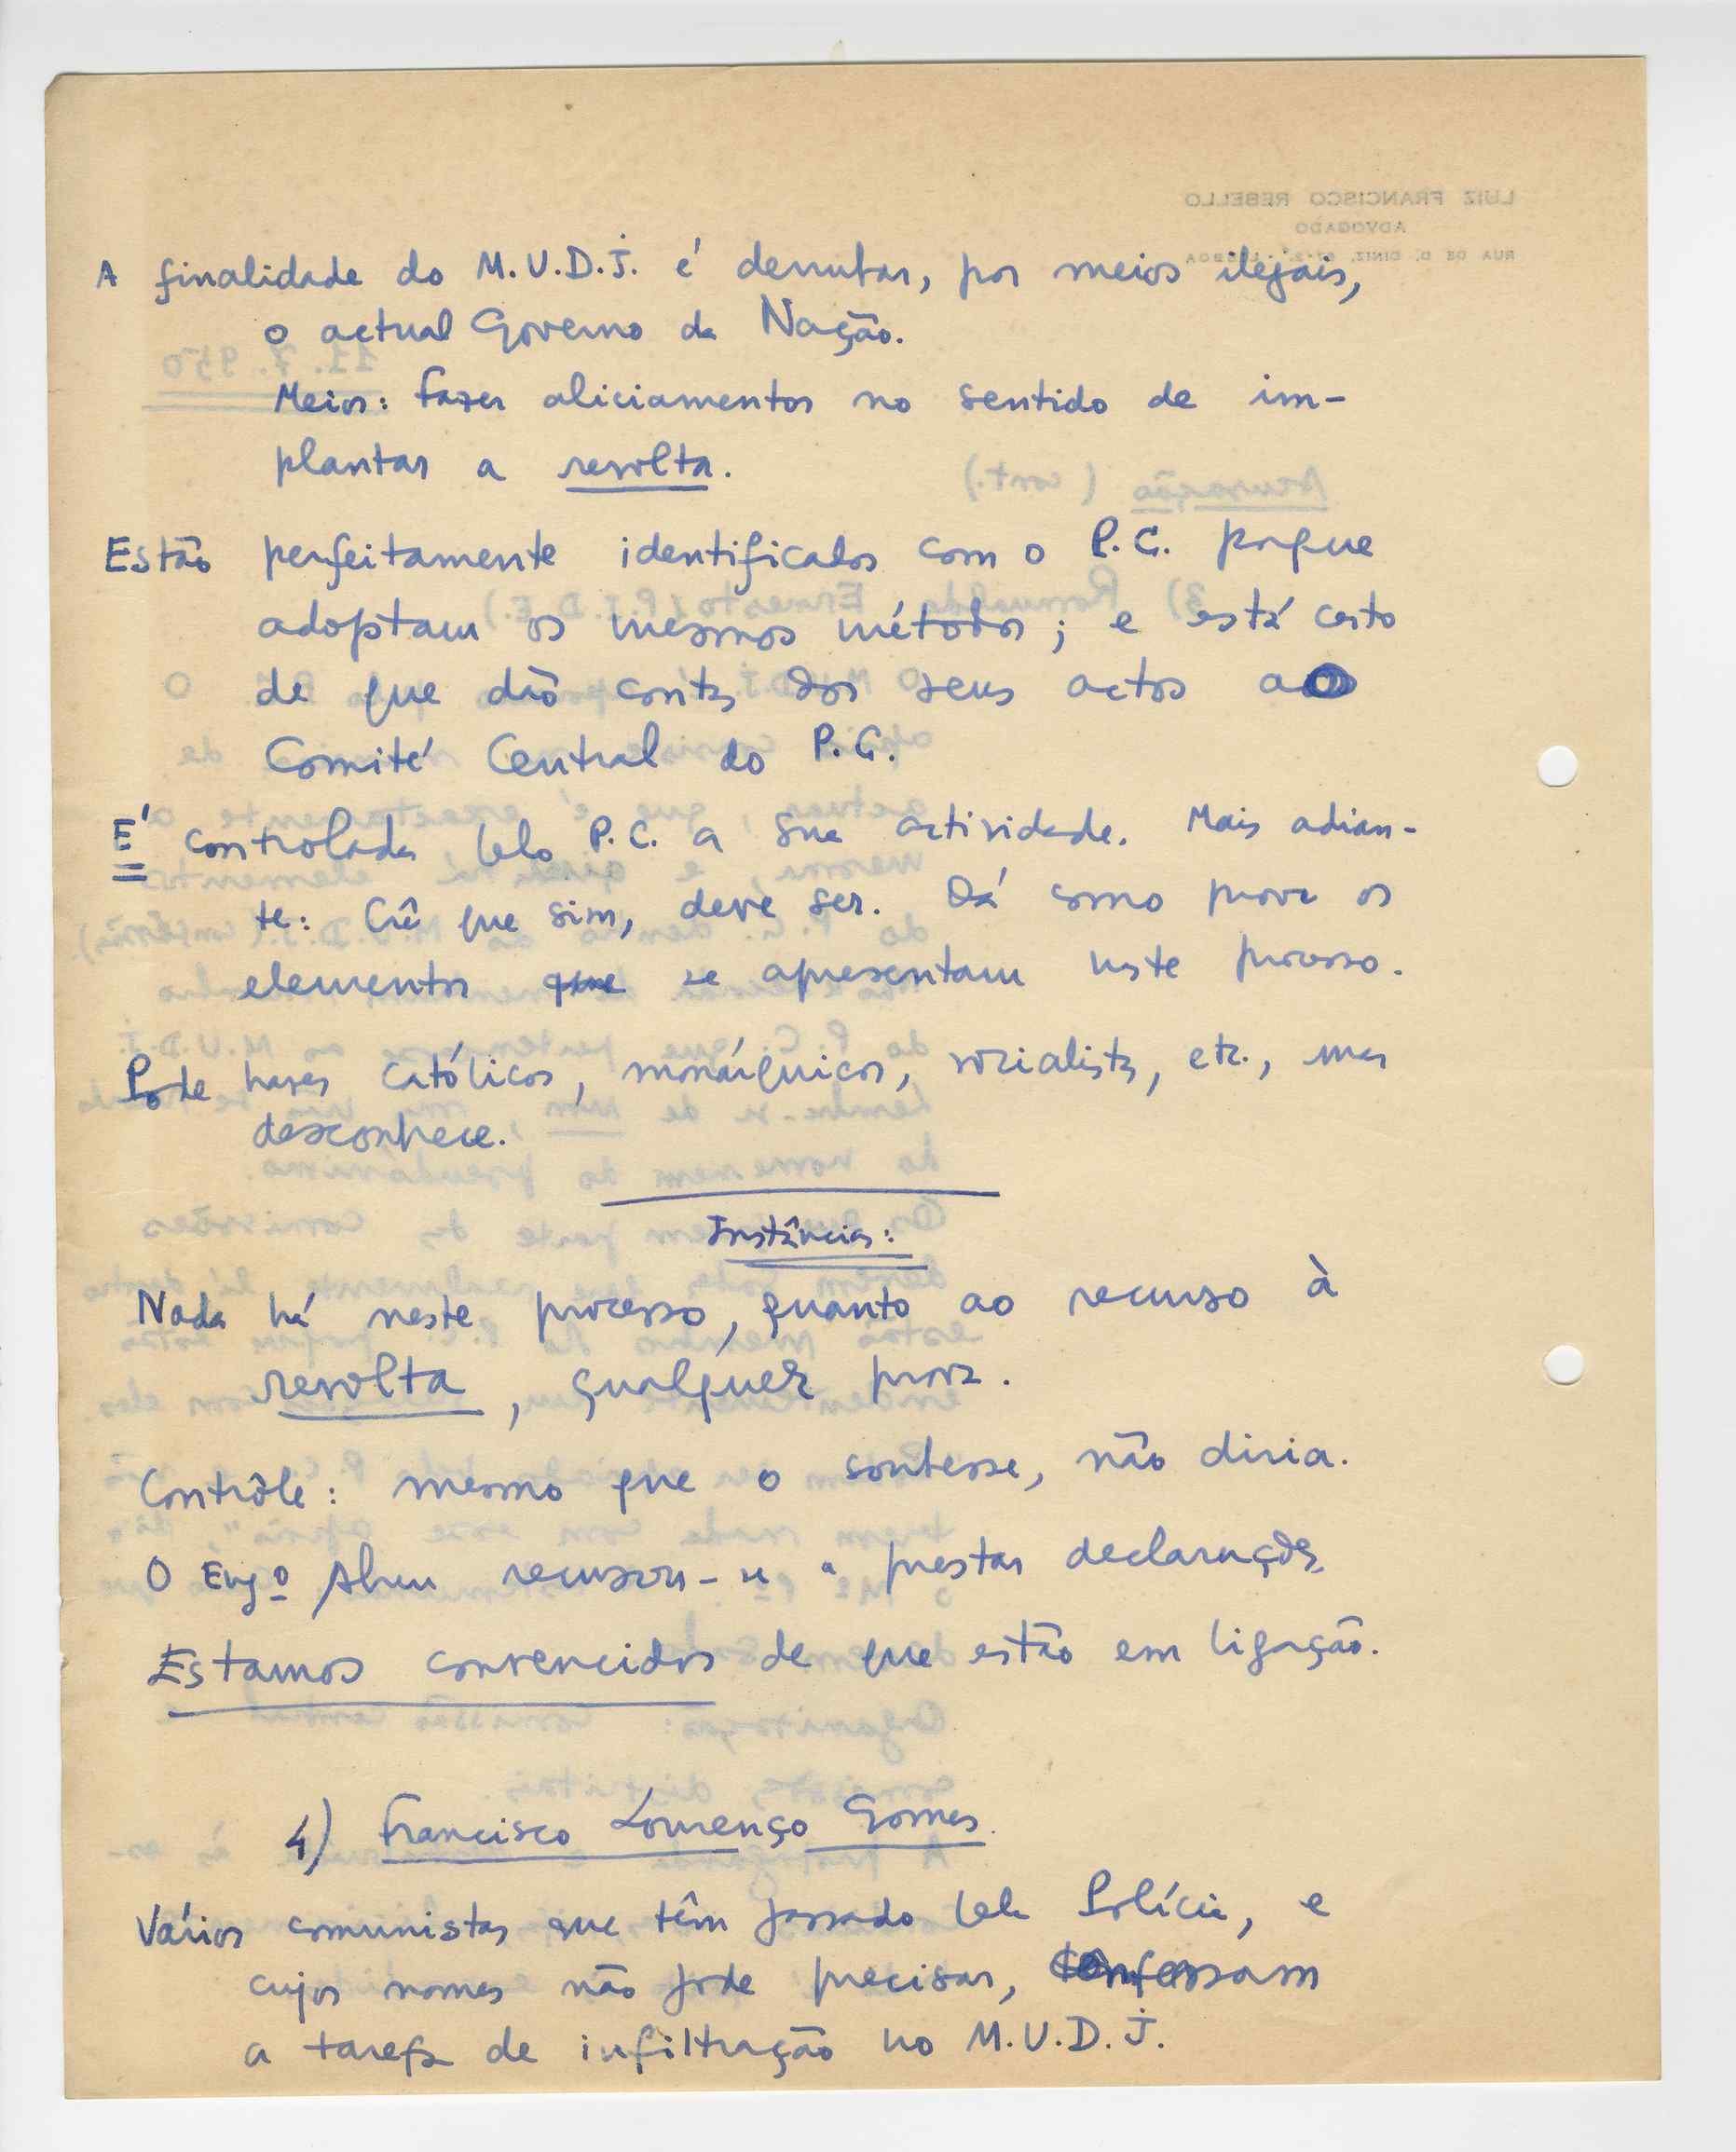 A finalidade do M.U.D.J. é derrubar, por meios ilegais,
o actual Governo da Nação.
Meios: fazer aliciamentos no sentido de im-
plantar a revolta.
Estão perfeitamente identificados com o P.C. porque
adoptam os mesmos métodos; e está certo
de que dão contas dos seus actos ao
Comité Central do P.C.
É controlada pelo P.C. a sua actividade. Mais adian-
te: Crê que sim, deve ser. Dá como prova os
elementos que se apresentam neste processo.
Pode haver católicos, monárquicos, socialistas, etc., mas
desconhece.
Instâncias:
Nada há neste processo, quanto ao recurso à
revolta, qualquer prova.
Contrôle: mesmo que o soubesse, não diria.
O Engº Abreu recusou-se a prestar declarações
Estamos convencidos de que estão em ligação.
4) Francisco Lourenço Gomes.
Vários comunistas que têm passado pela Polícia, e
cujos nomes não pode precisar, confessam
a tarefa de infiltração no M.U.D.J.
LUIZ FRANCISCO REBELLO
ADVOGADO
11.7.950
Acusação (cont.)